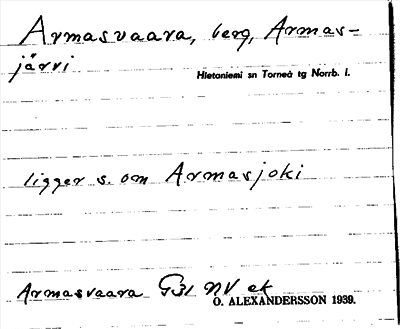 Armasvaara, berg, Armas-
järvi
Hietaniemi sn Torneå tg Norrb. l.
ligger s. om Armasjoki
Armasvaara G31 NV ek
O. ALEXANDERSSON 1939.